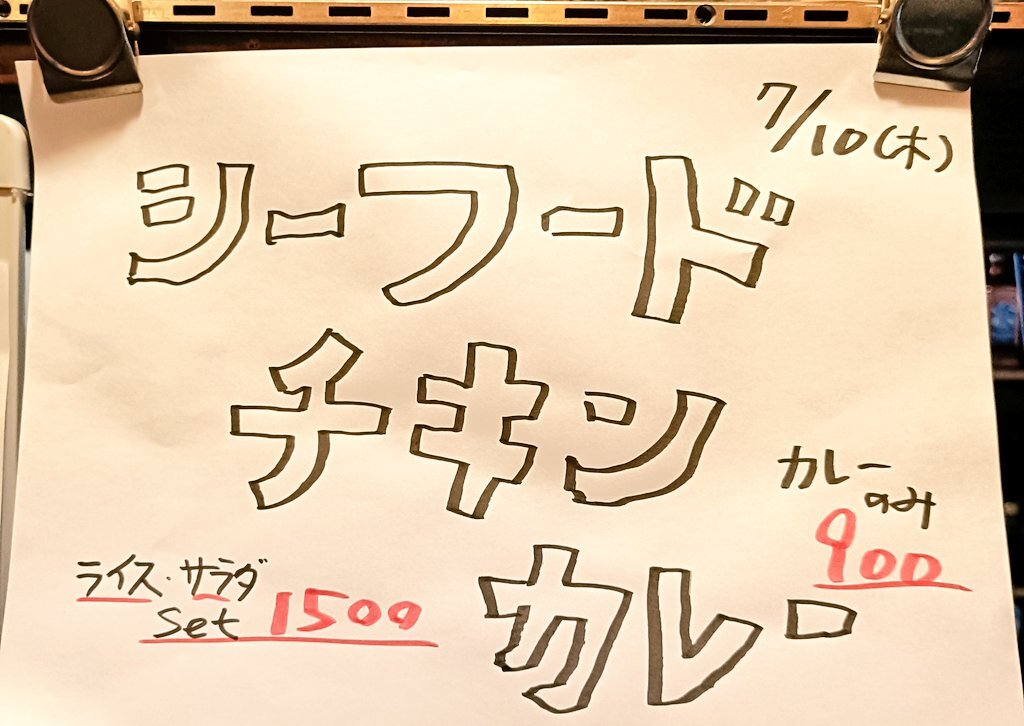 7/10(木)
シーフード
チキン
カレー
カレー
のみ
900
ライス・サラダ
Set 1500